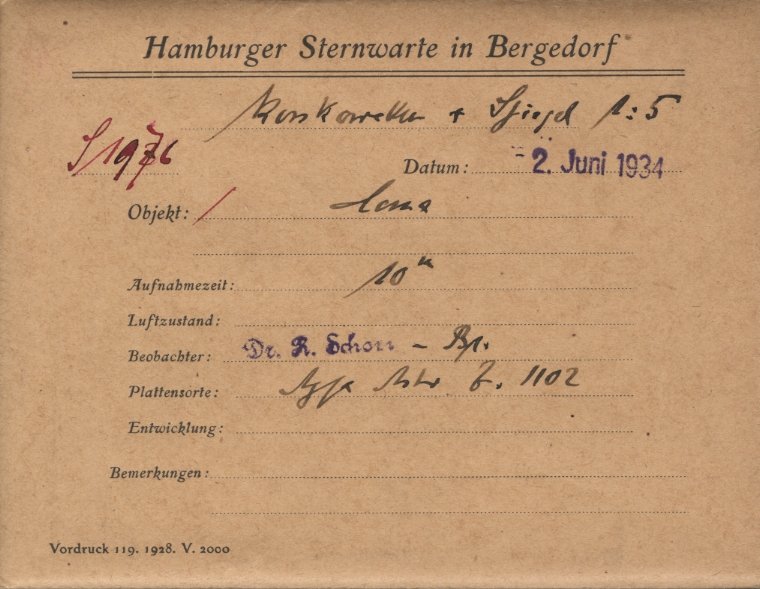 Hamburger Sternwarte in Bergedorf
+ Spiegel 1:5
S/1976
Datum: 2. Juni 1934
Objekt:
Aufnahmezeit: 10
Luftzustand:
Beobachter: Dr. R. Schorr –
Plattensorte: Agfa Astr. Z. 1102
Entwicklung:
Bemerkungen:
Vordruck 119. 1928. V. 2000